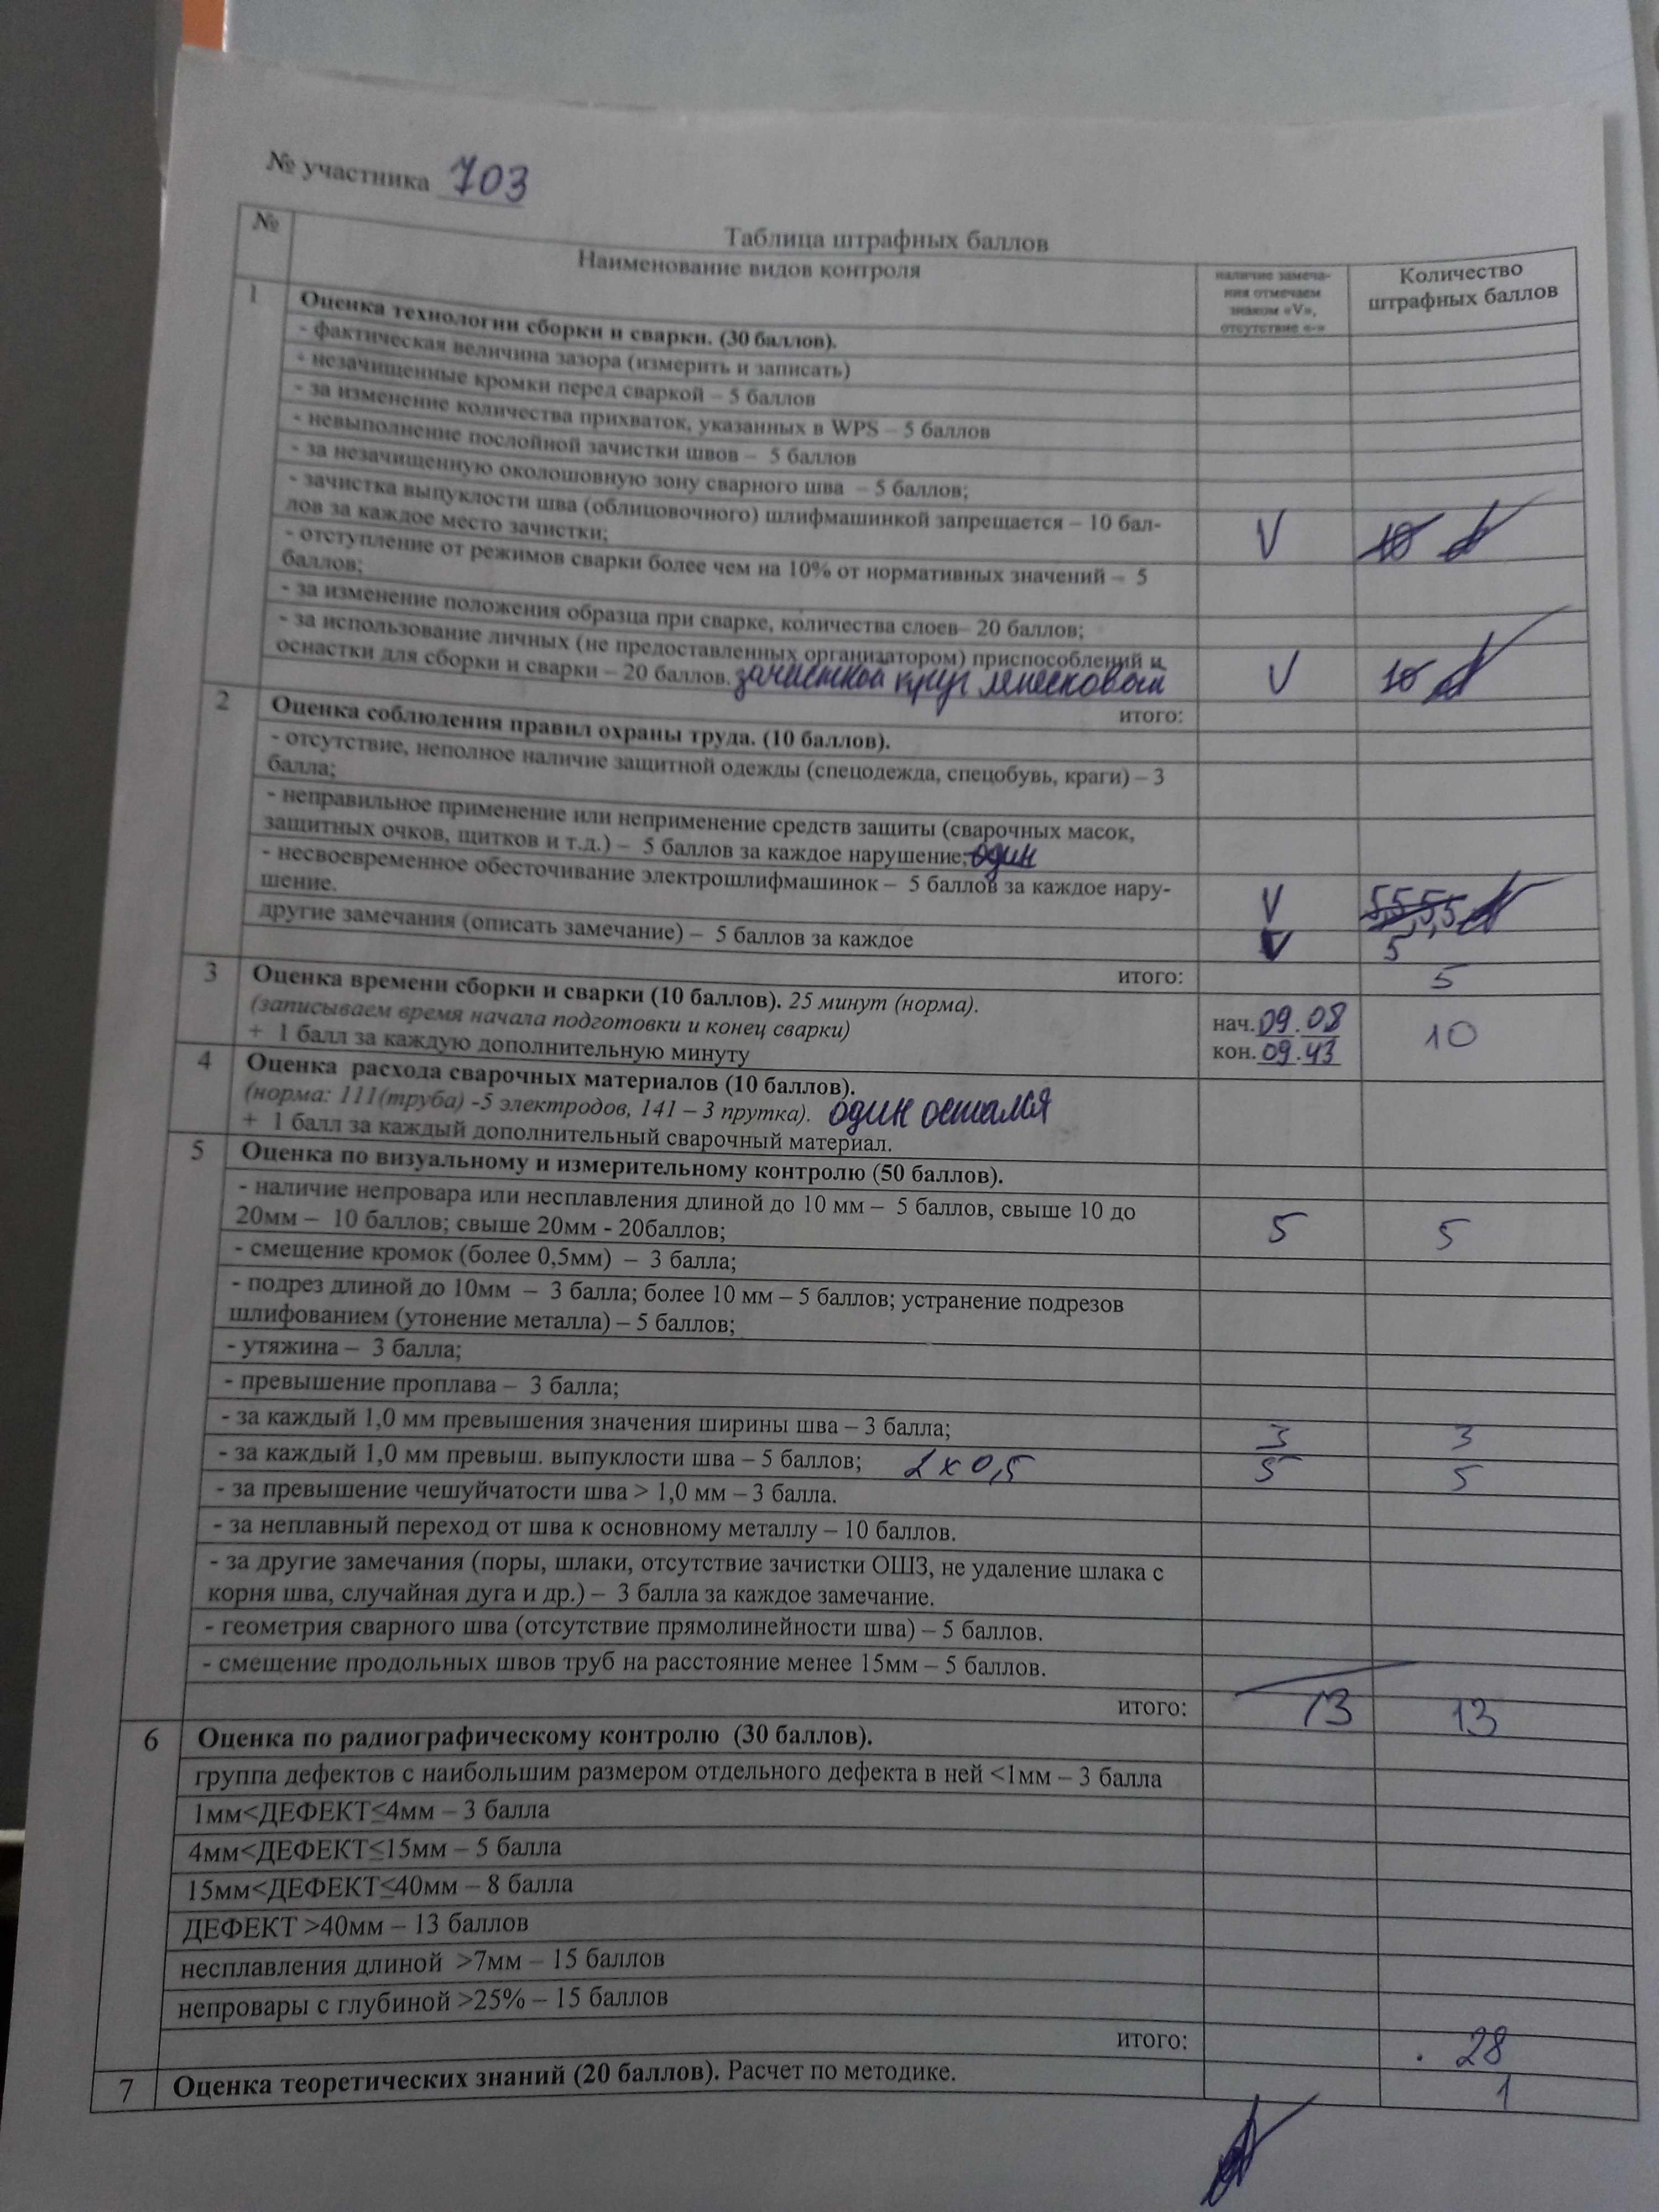 № участника 703
Таблица штрафных баллов
№
Наименование видов контроля
наличие замеча-
ния отмечаем
знаком «V»,
отсутствие «-»
Количество
штрафных баллов
1
Оценка технологии сборки и сварки. (30 баллов).
- фактическая величина зазора (измерить и записать)
- незачищенные кромки перед сваркой – 5 баллов
- за изменение количества прихваток, указанных в WPS – 5 баллов
- невыполнение послойной зачистки швов – 5 баллов
- за незачищенную околошовную зону сварного шва – 5 баллов;
- зачистка выпуклости шва (облицовочного) шлифмашинкой запрещается – 10 бал-
лов за каждое место зачистки;
V 10
- отступление от режимов сварки более чем на 10% от нормативных значений – 5
баллов;
- за изменение положения образца при сварке, количества слоев– 20 баллов;
- за использование личных (не предоставленных организатором) приспособлений и
оснастки для сборки и сварки – 20 баллов. зачистной круг лепесковый
V 10
итого:
2
Оценка соблюдения правил охраны труда. (10 баллов).
- отсутствие, неполное наличие защитной одежды (спецодежда, спецобувь, краги) – 3
балла;
- неправильное применение или неприменение средств защиты (сварочных масок,
защитных очков, щитков и т.д.) – 5 баллов за каждое нарушение; один
- несвоевременное обесточивание электрошлифмашинок – 5 баллов за каждое нару-
шение.
V 5,5,5,5
другие замечания (описать замечание) – 5 баллов за каждое
V 5
итого: 5
3
Оценка времени сборки и сварки (10 баллов). 25 минут (норма).
(записываем время начала подготовки и конец сварки)
+ 1 балл за каждую дополнительную минуту
нач. 09.08
кон. 09.43
10
4
Оценка расхода сварочных материалов (10 баллов).
(норма: 111(труба) -5 электродов, 141 – 3 прутка). один остался
+ 1 балл за каждый дополнительный сварочный материал.
5
Оценка по визуальному и измерительному контролю (50 баллов).
- наличие непровара или несплавления длиной до 10 мм – 5 баллов, свыше 10 до
20мм – 10 баллов; свыше 20мм - 20баллов;
5 5
- смещение кромок (более 0,5мм) – 3 балла;
- подрез длиной до 10мм – 3 балла; более 10 мм – 5 баллов; устранение подрезов
шлифованием (утонение металла) – 5 баллов;
- утяжина – 3 балла;
- превышение проплава – 3 балла;
- за каждый 1,0 мм превышения значения ширины шва – 3 балла; 3 3
- за каждый 1,0 мм превыш. выпуклости шва – 5 баллов; 2 x 0,5 5 5
- за превышение чешуйчатости шва > 1,0 мм – 3 балла.
- за неплавный переход от шва к основному металлу – 10 баллов.
- за другие замечания (поры, шлаки, отсутствие зачистки ОШЗ, не удаление шлака с
корня шва, случайная дуга и др.) – 3 балла за каждое замечание.
- геометрия сварного шва (отсутствие прямолинейности шва) – 5 баллов.
- смещение продольных швов труб на расстояние менее 15мм – 5 баллов.
итого: 13 13
6
Оценка по радиографическому контролю (30 баллов).
группа дефектов с наибольшим размером отдельного дефекта в ней <1мм – 3 балла
1мм<ДЕФЕКТ≤4мм – 3 балла
4мм<ДЕФЕКТ≤15мм – 5 балла
15мм<ДЕФЕКТ≤40мм – 8 балла
ДЕФЕКТ >40мм – 13 баллов
несплавления длиной >7мм – 15 баллов
непровары с глубиной >25% – 15 баллов
итого: 28
7
Оценка теоретических знаний (20 баллов). Расчет по методике. 1